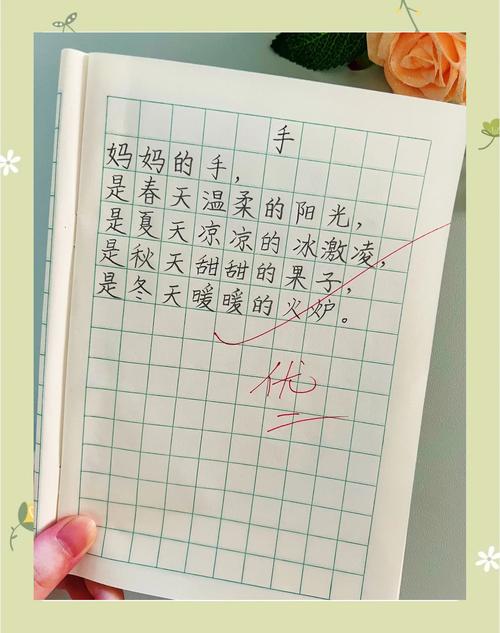 手
妈妈的手，
是春天温柔的阳光，
是夏天凉凉的冰激凌，
是秋天甜甜的果子，
是冬天暖暖的火炉。
优